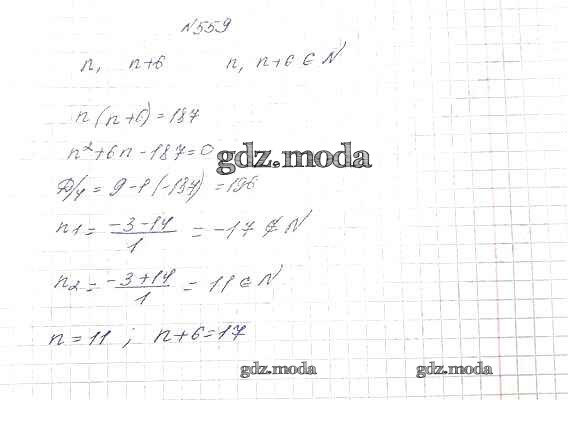 №559
n, n+6 n, n+6 ∈ N
n(n+6)=187
n²+6n-187=0
gdz.moda
D/4 = 9-1(-187) = 196
n1 = (-3-14)/1 = -17 ∉ N
n2 = (-3+14)/1 = 11 ∈ N
n=11; n+6=17
gdz.moda gdz.moda